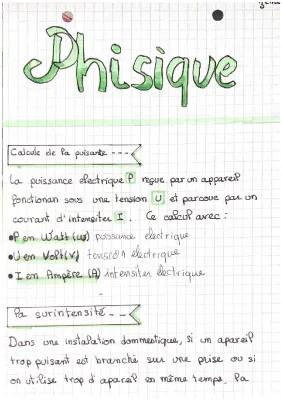 Phisique
Calcule de la puisante ---
La puissance electrique P reçue par un appareil
fonctionan sous une tension U et parcoue par un
courant d'intensiter I. Ce calcul avec :
•P en Watt (w) puissance electrique
•U en Volt (v) tension electrique
•I en Ampère (A) intensiter electrique
la surintensité ---
Dans une instalation dommestique, si un apareil
trop puisant est branché sur une prise ou si
on utilise trop d'apareil en même temps, la